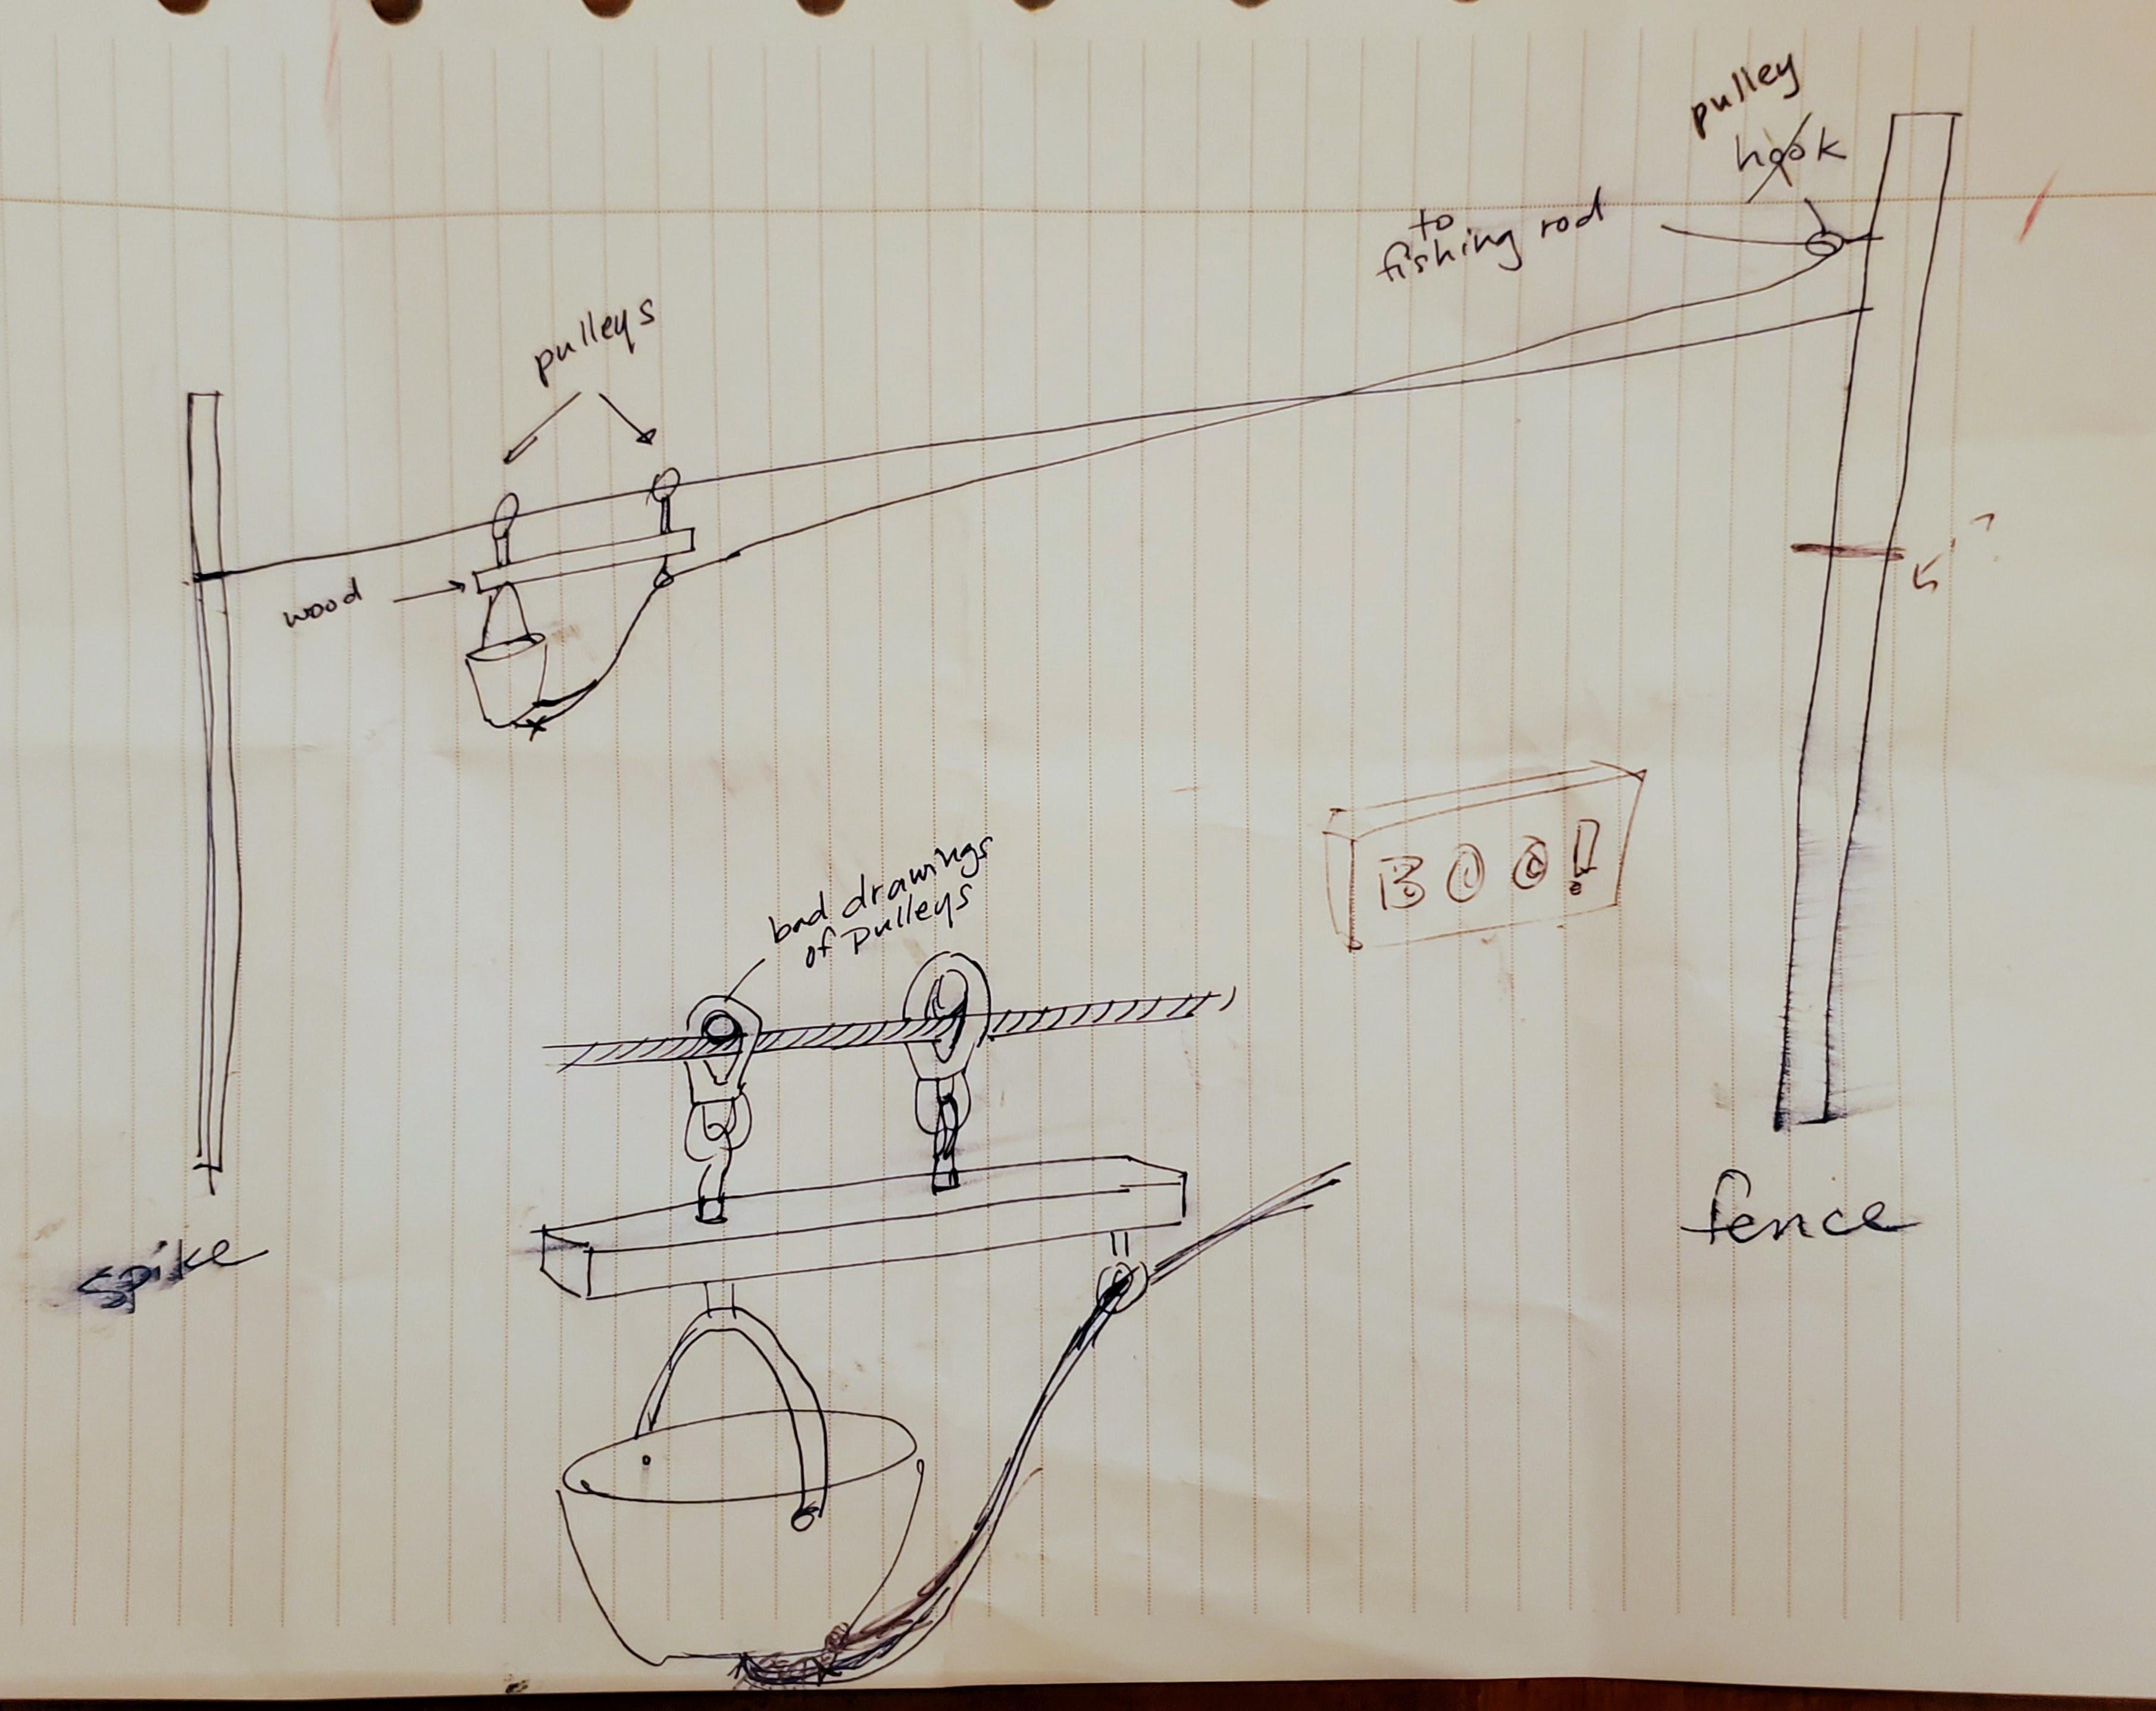 pulley
hook
to
fishing rod
pulleys
?
wood
BOO!
bad drawings
of pulleys
fence
spike